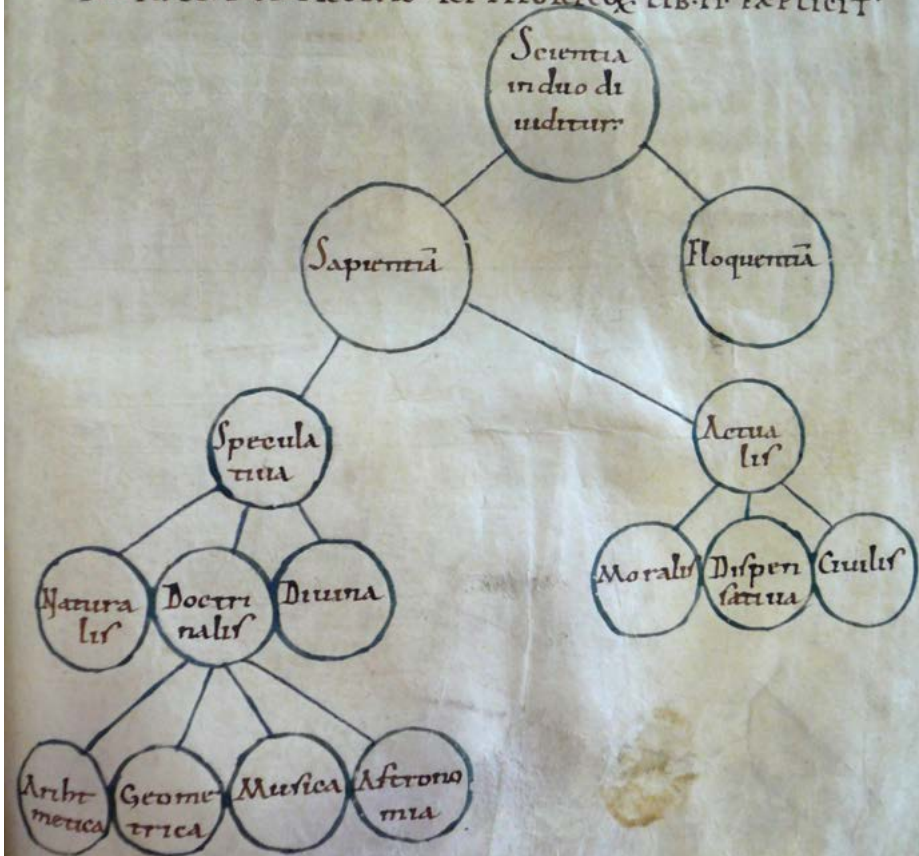 LIB·II· EXPLICIT·
Scientia
induo di
uiditur:
Sapientiā
Eloquentiā
Specula
tiua
Actua
lis
Natura
lis
Doctri
nalis
Diuina
Moralis
Dispen
satiua
Ciuilis
Ariht
metica
Geome
trica
Musica
Astrono
mia